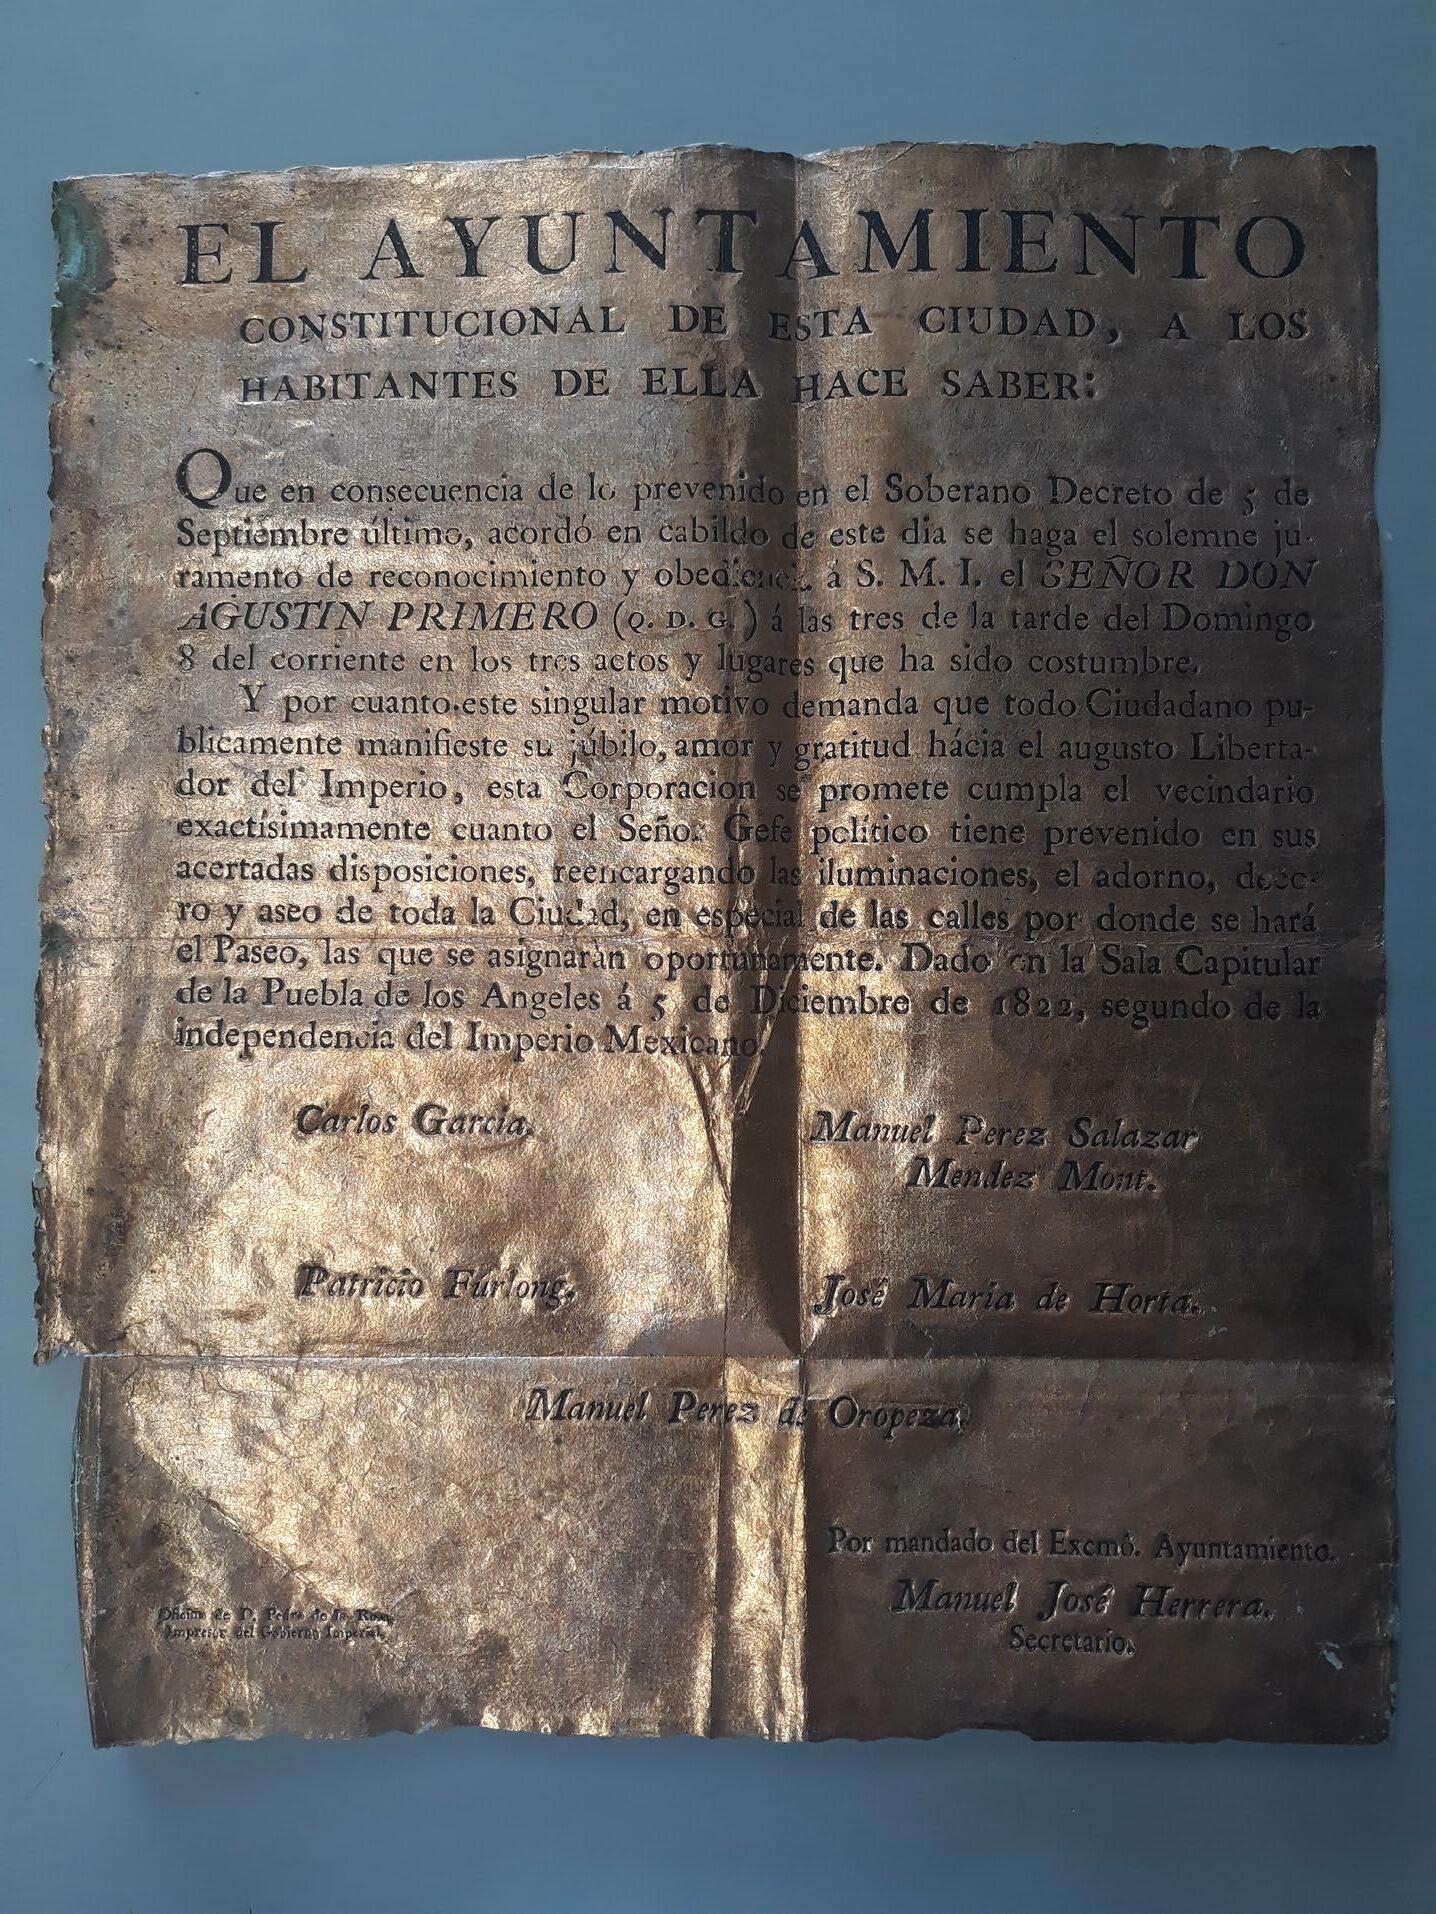 EL AYUNTAMIENTO
CONSTITUCIONAL DE ESTA CIUDAD, A LOS
HABITANTES DE ELLA HACE SABER:
Que en consecuencia de lo prevenido en el Soberano Decreto de 5 de
Septiembre último, acordó en cabildo de este dia se haga el solemne ju-
ramento de reconocimiento y obediencia á S. M. I. el SEÑOR DON
AGUSTIN PRIMERO (Q. D. G.) á las tres de la tarde del Domingo
8 del corriente en los tres actos y lugares que ha sido costumbre.
Y por cuanto este singular motivo demanda que todo Ciudadano pu-
blicamente manifieste su júbilo, amor y gratitud hácia el augusto Liberta-
dor del Imperio, esta Corporacion se promete cumpla el vecindario
exactísimamente cuanto el Señor Gefe político tiene prevenido en sus
acertadas disposiciones, reencargando las iluminaciones, el adorno, deco-
ro y aseo de toda la Ciudad, en especial de las calles por donde se hará
el Paseo, las que se asignarán oportunamente. Dado en la Sala Capitular
de la Puebla de los Angeles á 5 de Diciembre de 1822, segundo de la
independencia del Imperio Mexicano.
Carlos Garcia.
Manuel Perez Salazar
Mendez Mont.
Patricio Furlong.
José Maria de Horta.
Manuel Perez de Oropeza.
Por mandado del Excmô. Ayuntamiento.
Manuel José Herrera.
Secretario.
Oficina de D. Pedro de la Rosa,
Impresor del Gobierno Imperial.